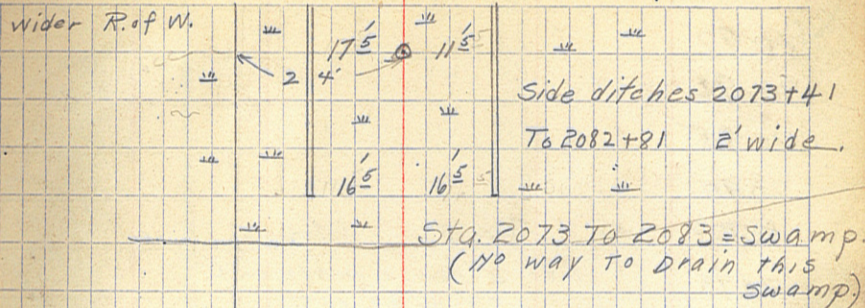 wider R. of W.
17'5 11'5
2 4'
Side ditches 2073+41
To 2082+81 2' wide.
16'5 16'5
Sta. 2073 To 2083 = Swamp.
(No way To Drain this
swamp.)